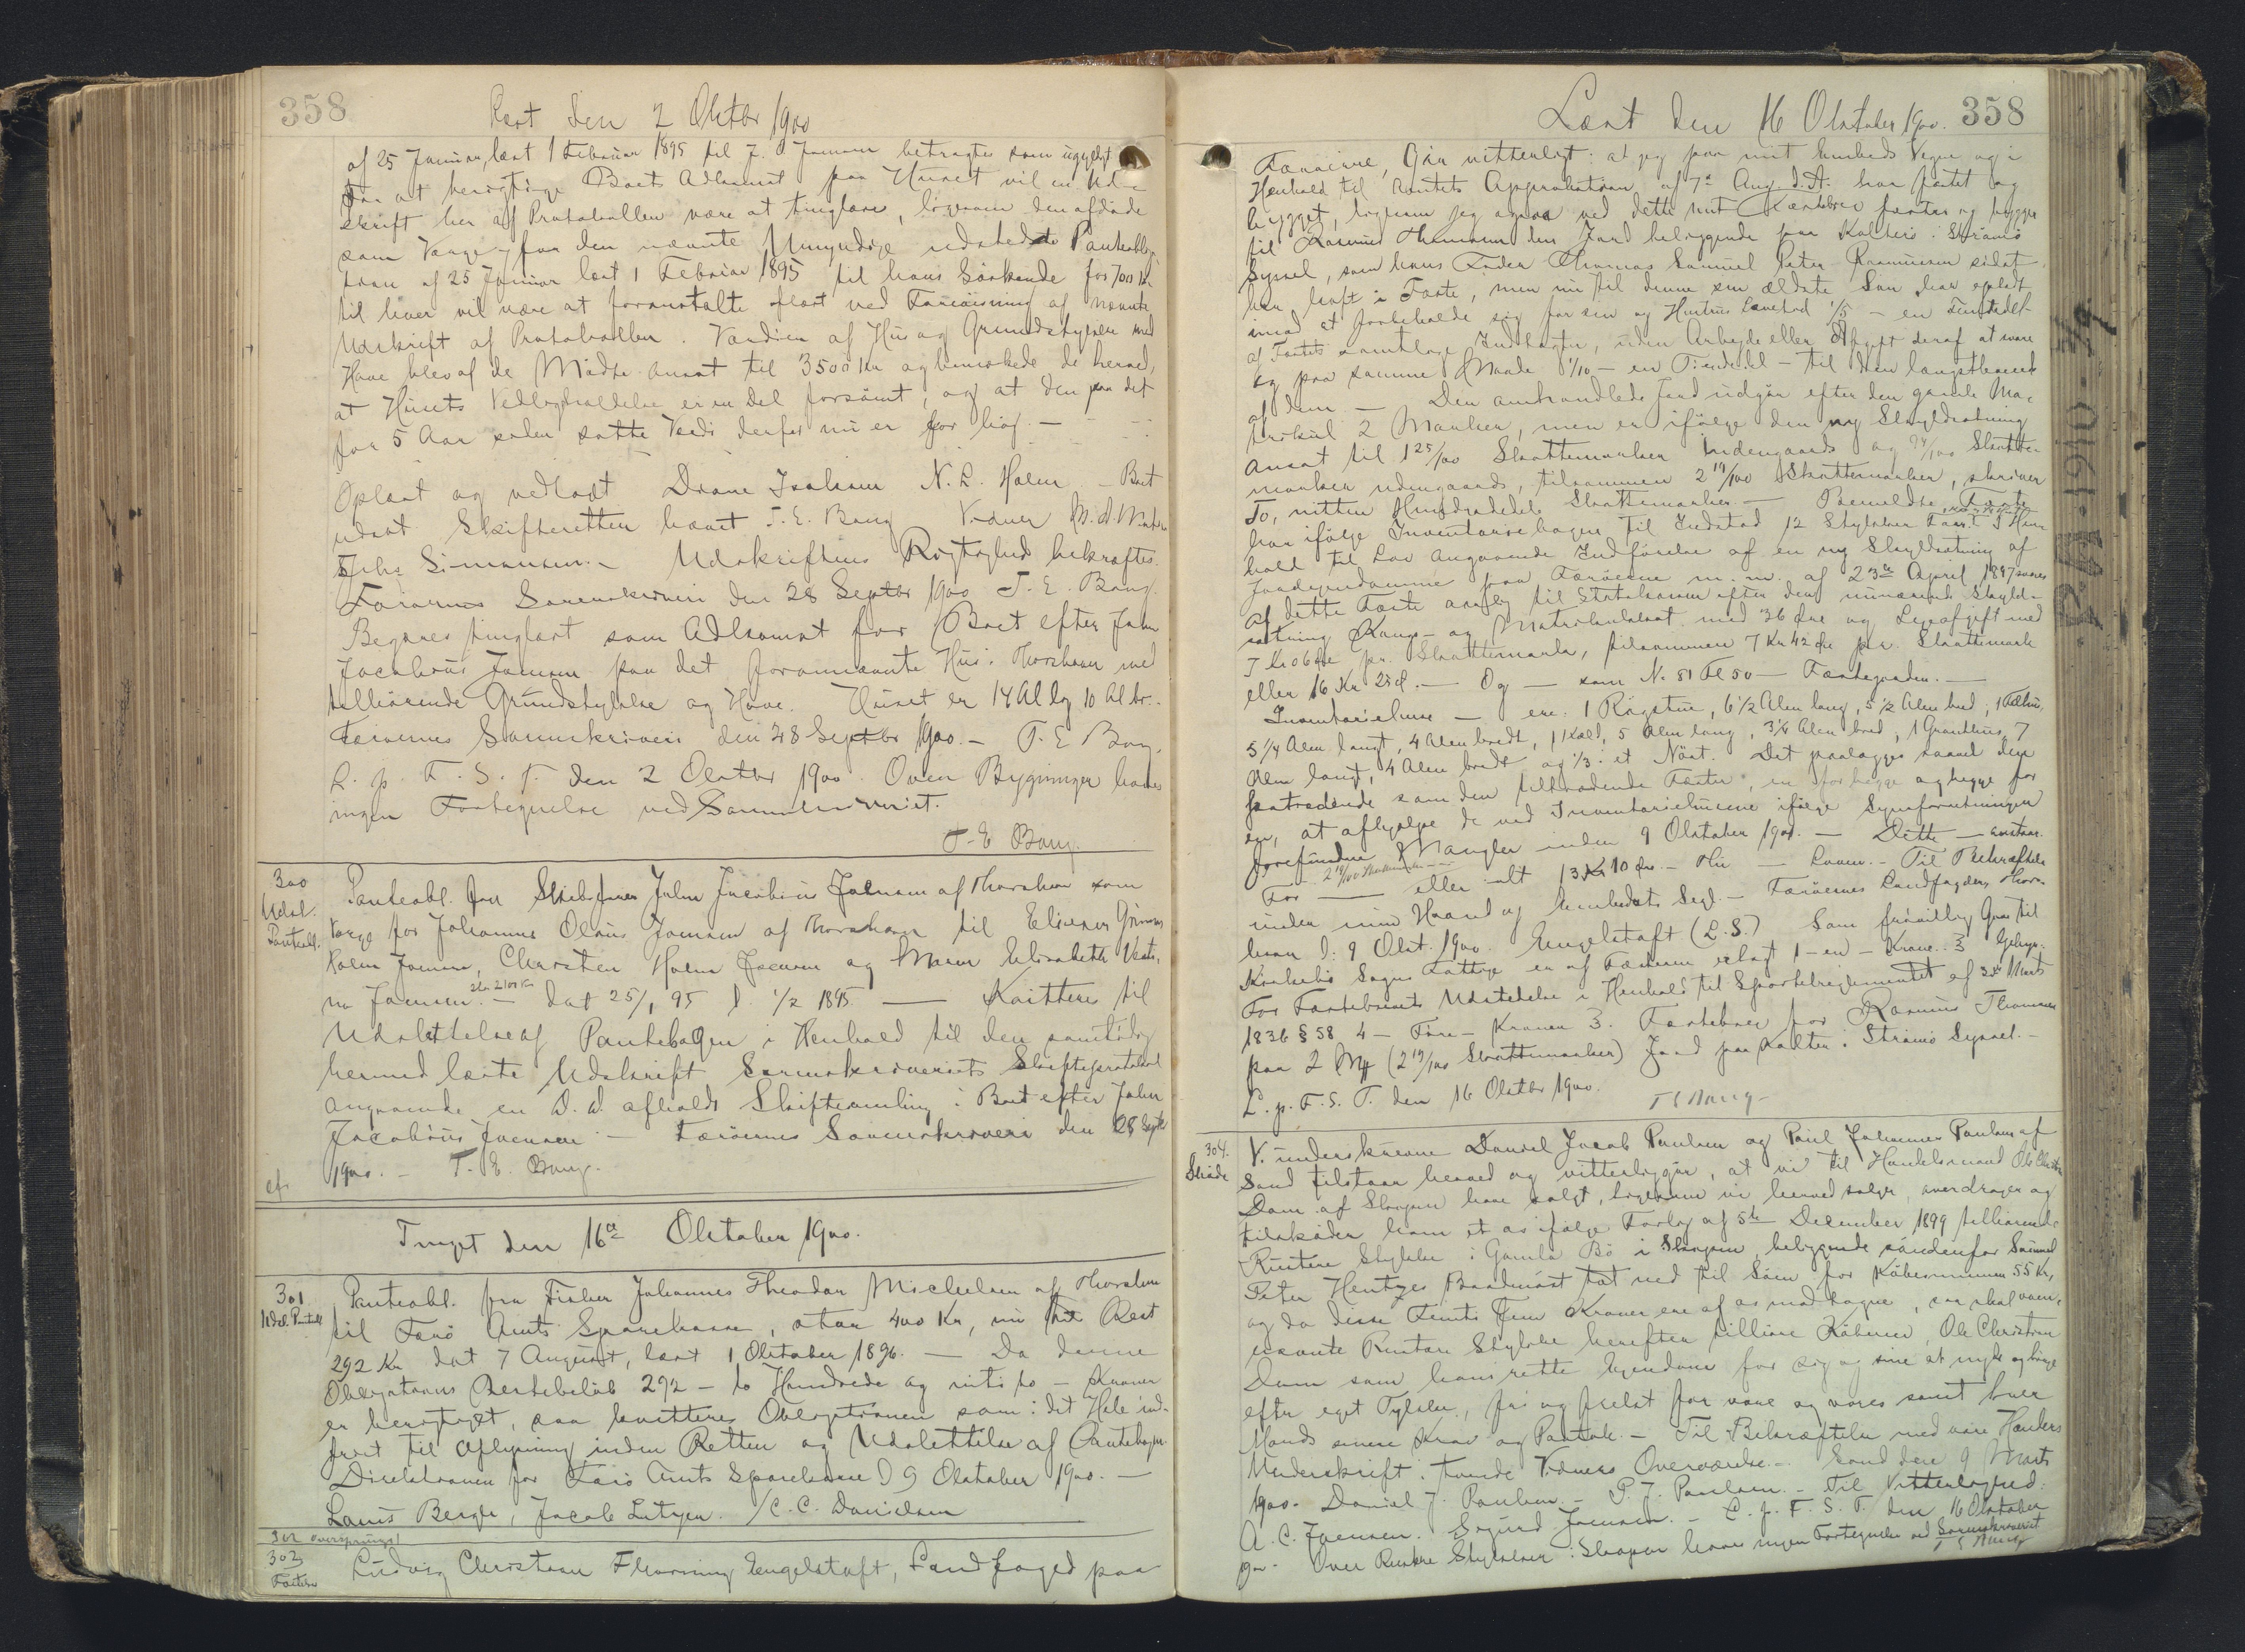 358
Læst den 2 Oktbr 1900
af 25 Januar, læst 1 Februar 1895 til J. O Joensen betragtes som ugyldigt
For at berigtige Boets Adkomst paa Huset vil en Ud-
skrift her af Protokollen være at tinglæse, ligesom den afdøde
som Værge for den nævnte Umyndige udstedte Panteobliga-
tion af 25 Januar læst 1 Februar 1895 til hans Søskende for 700 Kr
til hver vil være at foranstalte aflæst ved Forevisning af nævnte
Udskrift af Protokollen. Værdien af Hus og Grundstykke med
Have blev af de Mødte ansat til 3500 Kr og bemærkede de herved,
at Husets Vedligeholdelse er en Del forsømt, og at den paa det
for 5 Aar siden satte Værdi derfor nu er for høj. —
Oplæst og vedtaget Diane Isaksen N. L. Holm — Boet
udsat Skifteretten hævet T. E. Bang Vidner
Johs Simonsen. — Udskriftens Rigtighed bekræftes.
Færøernes Sorenskriveri den 28 Septbr 1900 T. E. Bang.
Begæres tinglæst som Adkomst for Boet efter John
Jacobius Joensen paa det forannævnte Hus i Thorshavn med
tilhørende Grundstykke og Have. Huset er 14 Al lg 10 Al br.
Færøernes Sorenskriveri den 28 Septbr 1900. — T. E Bang.
L. p. F. S. T. den 2 Oktbr 1900. Over Bygninger haves
ingen Fortegnelse ved Sorenskriveriet.
T. E Bang.
300
Udsl.
Panteobl.
Panteobl. fra Skibsfører John Jacobius Joensen af Thorshavn som
Værge for Johannes Olaus Joensen af Thorshavn til Elieser
Holm Joensen, Christen Holm Joensen og Maren Elisabeth
Joensen. — stor 2100 Kr dat 25/1 95 l. 1/2 1895 — Kvitteres til
Udslettelse af Pantebogen i Henhold til den samtidig
hermed læste Udskrift Sorenskriveriets Skifteprotokol
angaaende en D. D. afholdt Skiftesamling i Boet efter John
Jacobius Joensen — Færøernes Sorenskriveri den 28 Septbr
1900. — T. E. Bang.
Tinget den 16de Oktober 1900.
301
Udsl. Panteobl
Panteobl. fra Fisker Johannes Theodor Michelsen af Thorshavn
til Færø Amts Sparekasse, stor 400 Kr, nu Rest
292 Kr dat 7 August, læst 1 Oktober 1896. — Da denne
Obligations Restebeløb 292 — to Hundrede og niti to — Kroner
er berigtiget, saa kvitteres Obligationen som i det Hele ind-
friet til Aflysning inden Retten og Udslettelse af Pantebogen.
Direktionen for Færø Amts Sparekasse D 9 Oktober 1900. —
Louis Bergh, Jacob Lützen. /C. C. Danielsen
302 oversprunget
303
Fæstebr
Ludvig Christian Flavning Engelstoft, Landfoged paa
Læst den 16 Oktober 1900. 358
Færøerne, Gør vitterligt: at jeg paa mit Embeds Vegne og i
Henhold til Amtets Approbation af 7de Aug. d. A. har fæstet og
bygget, ligesom jeg ogsaa ved dette mit Fæstebrev fæster og bygger
til Rasmus Thomasen den Jord beliggende paa Kolterø i Strømø
Syssel, som hans Fader Thomas Samuel Peter Rasmussen sidst
har haft i Fæste, men nu til denne sin ældste Søn har opladt
imod at forbeholde sig for sin og Hustrus Levetid 1/5 — en Femtedel —
af Fæstets samtlige Indtægter, uden Arbejde eller Afgift deraf at svare
og paa samme Maade 1/10 — en Tiendedel — til den længstlevende
af dem — Den omhandlede Jord udgør efter den gamle Ma-
trikul 2 Marker, men er ifølge den ny Skyldsætning
ansat til 1 25/100 Skattemarker indengaards og 94/100 Skatte-
marker udengaards, tilsammen 2 19/100 Skattemarker, skriver
To, nitten Hundrededele Skattemarker — Bemeldte Fæste
har ifølge Inventariebogen til Indstød 12 Stykker Faar. I Hen-
hold til Lov angaaende Indførelse af en ny Skyldsætning af
Jordejendomme paa Færøerne m. m. af 23de April 1897 svares
af dette Fæste aarlig til Statskassen efter den nuværende Skyld-
sætning Konge- og Matrikulskat med 36 Øre og Lejeafgift med
7 Kr 06 Øre pr. Skattemark, tilsammen 7 Kr 42 Øre pr. Skattemark
eller 16 Kr 25 Ø. — Og — som No 81 Fol 50 — Fæstegaarden. —
Inventariehuse — ere: 1 Røgstue, 6 1/2 Alen lang, 5 1/2 Alen bred, 1
5 1/4 Alen langt, 4 Alen bredt, 1 Hjald, 5 Alen lang, 3 1/4 Alen bred, 1 Grandhus 7
Alen langt, 4 Alen bredt og 1/3 i et Nøst. Det paalægges saavel den
fratrædende som den tiltrædende Fæster, en for begge og begge for
en, at afhjælpe de ved Inventariehusene ifølge Synsforretningen
forefundne Mangler inden 9 Oktober 1901. — Dette — anstaar.
For — 2 19/100 Skattemarker — eller ialt 13 Kr 10 Øre — Hr — Loven. — Til Bekræftelse
under min Haand og Embedets Segl. — Færøernes Landfogderi, Thors-
havn d: 9 Okt. 1900. Engelstoft (L. S.) Som frivillig Gave til
Kirkebø Sogns Fattige er af Fæsteren erlagt 1 — en — Krone. 3 Gebyr:
For Fæstebrevets Udstedelse i Henhold til Sportelreglementet af 30te Marts
1836 § 58 4 — Fire — Kroner 3. Fæstebrev for Rasmus Thomasen
paa 2 Mk (2 19/100 Skattemarker) Jord paa Kolter i Strømø Syssel. —
L. p. F. S. T. den 16 Oktbr 1900.
T E Bang
304.
Skøde
Vi underskrevne Daniel Jacob Paulsen og Poul Johannes Paulsen af
Sand tilstaar herved og vitterliggør, at vi til Handelsmand Ole Christian
Dam af Skopun have solgt, ligesom vi herved sælge, overdrager og
tilskøder ham et os ifølge Forlig af 5te December 1899 tilhørende
Røitere Stykke i Gamla Bø i Skopun, beliggende søndenfor
Peter Hentzes Baadnøst tæt ned til Søen for Købesummen 55 Kr,
og da disse Femti Fem Kroner ere af os modtagne, saa skal oven-
nævnte Stykke herefter tilhøre Køberen, Ole Christian
Dam som hans rette Ejendom for sig og sine at nyde og bruge
efter eget Tykke, fri og frelst for vore og vores samt hver
Mands videre Krav og Paatale. — Til Bekræftelse med vore Hænders
Underskrift i tvende Vidners Overværelse. — Sand den 9 Marts
1900. Daniel J. Paulsen — P. J. Paulsen. — Til Vitterlighed:
A. C. Joensen. Sigurd Joensen. — L. p. F. S. T. den 16 Oktober
1900. Over Stykker i Skopun haves ingen Fortegnelse ved Sorenskriveriet
T E Bang